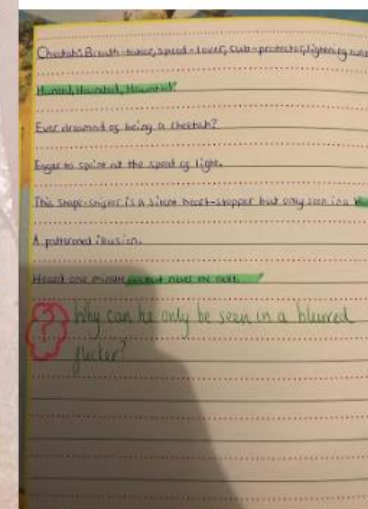 Cheetah: Breath-taker, speed-lover, cub-protector, lightening
Hunted, Haunted, Haunted?
Ever dreamed of being a cheetah?
Eager to sprint at the speed of light.
This shape-shifter is a silent heart-stopper but only seen in a
A patterned illusion.
Heard one minute but never the next.
? Why can he only be seen in a blurred
flicker?